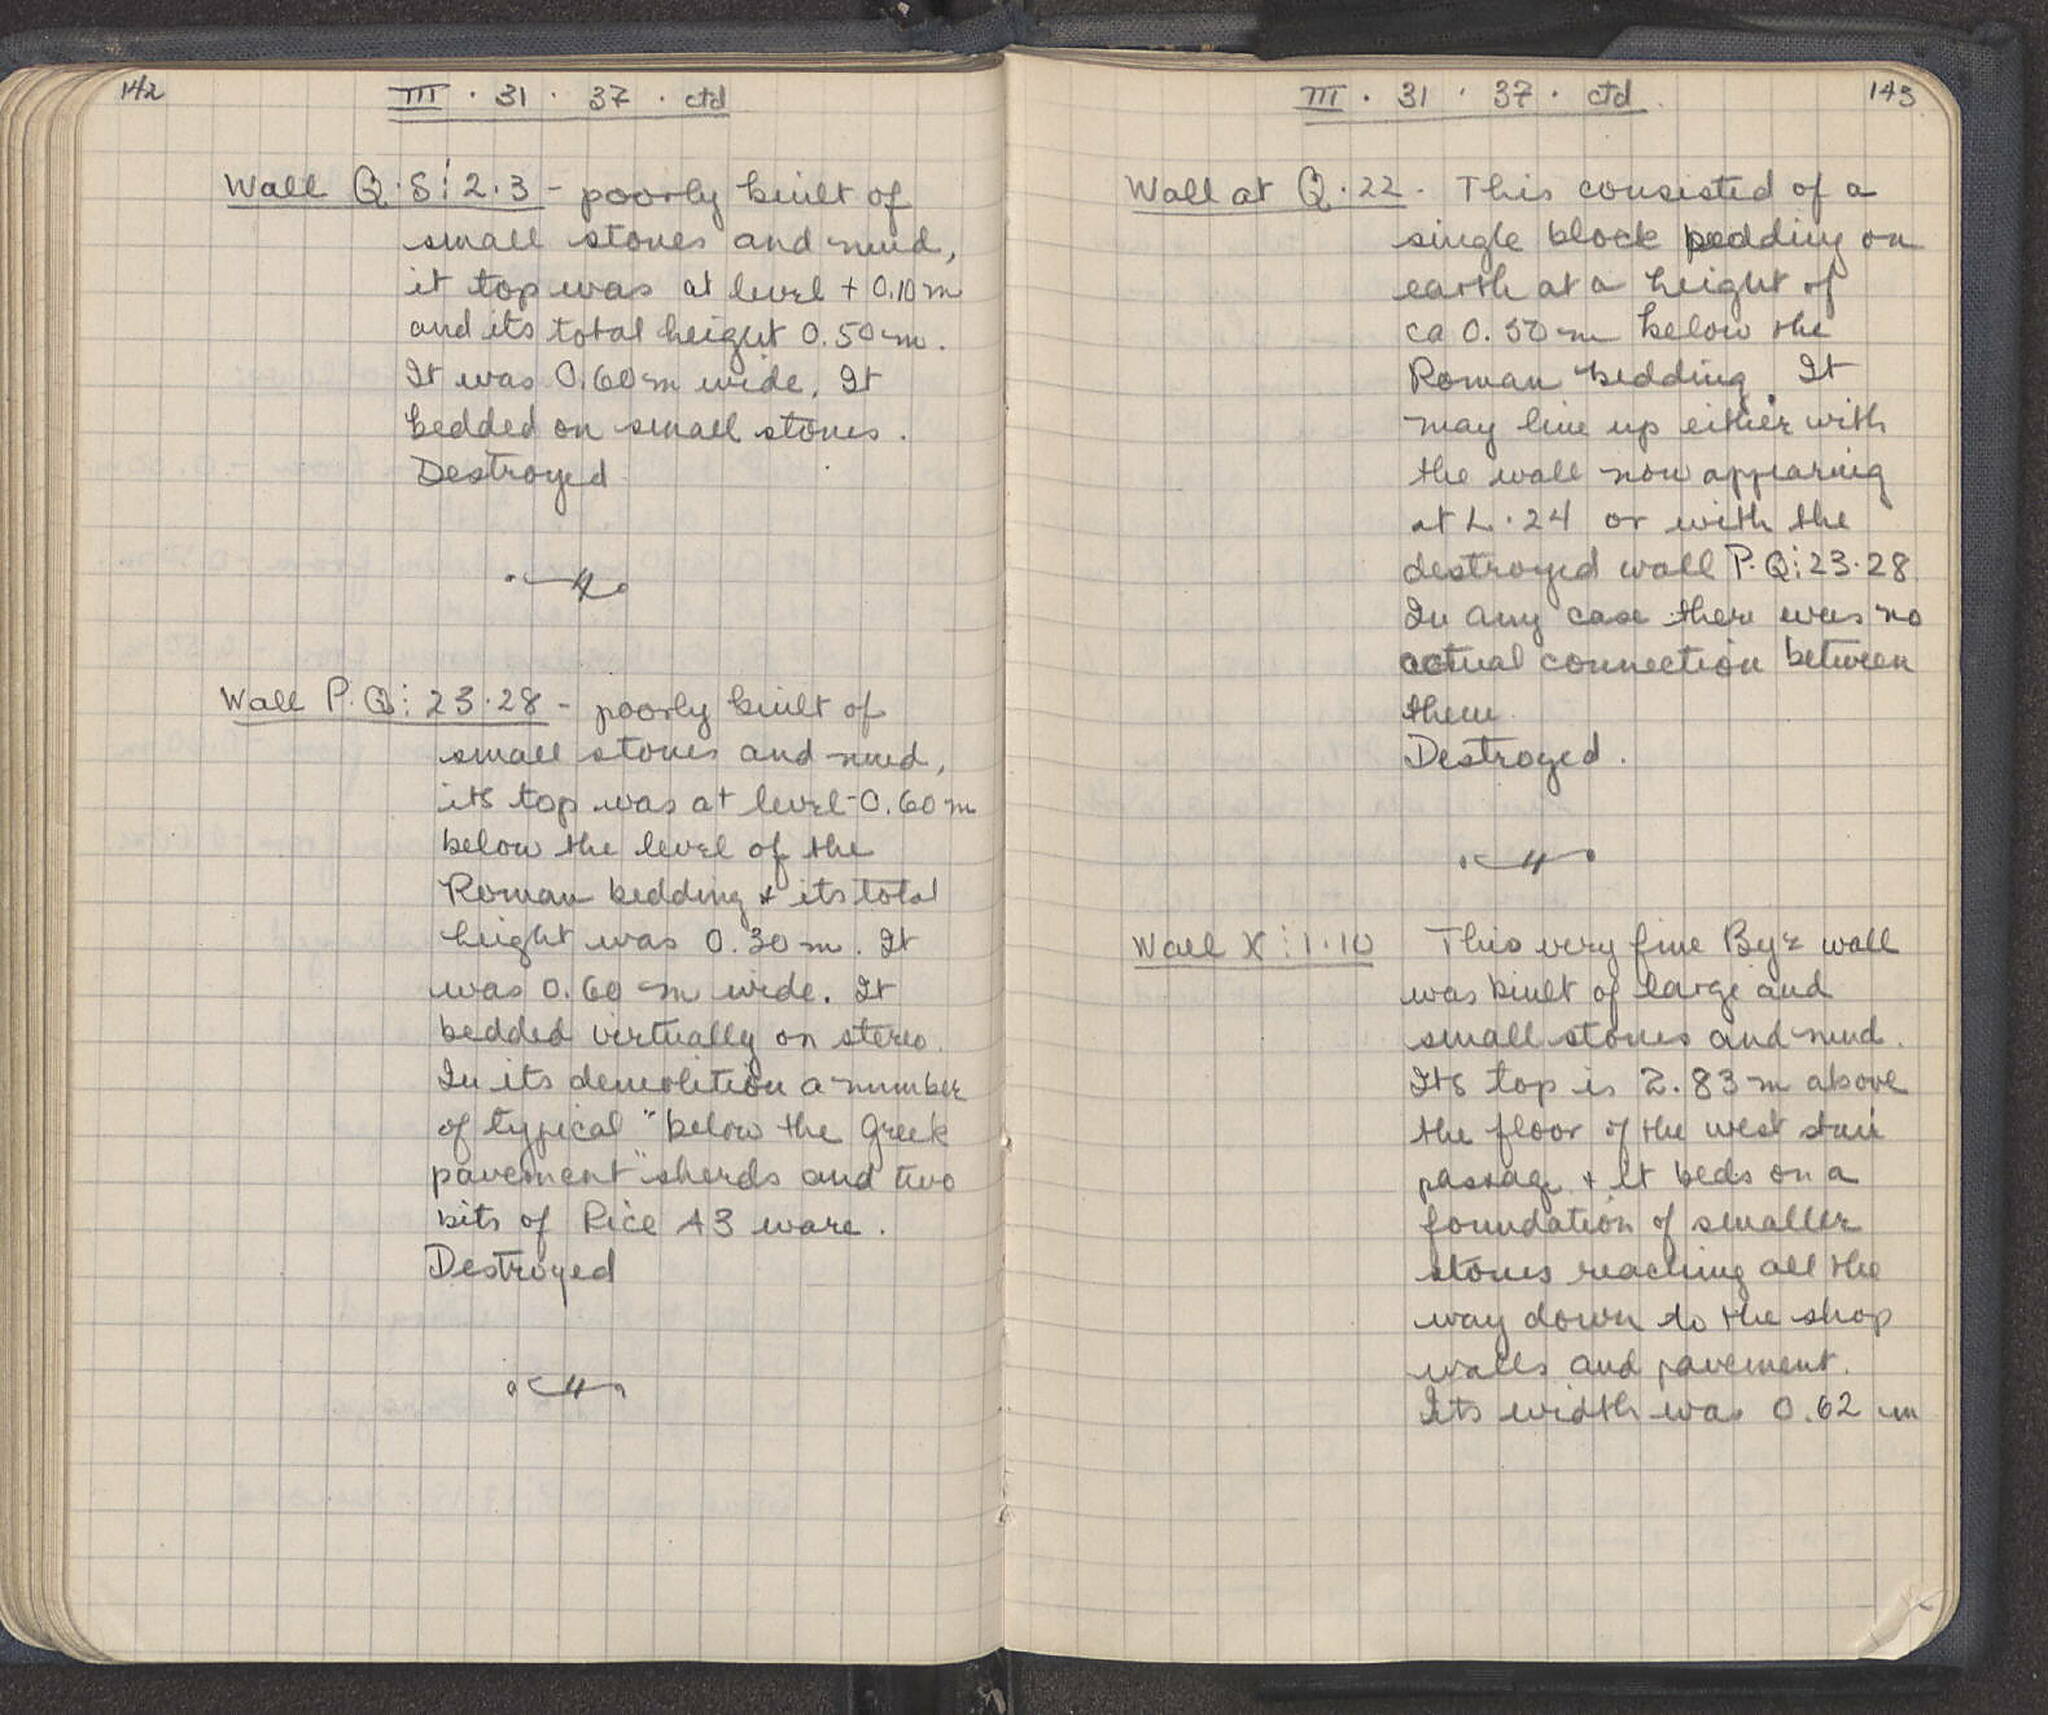 142
III · 31 · 37 · ctd
Wall Q·S⋮2·3 - poorly built of
small stones and mud,
it top was at level + 0.10 m
and its total height 0.50 m.
It was 0.60 m wide. It
bedded on small stones.
Destroyed
Wall P·Q⋮23·28 - poorly built of
small stones and mud,
its top was at level -0.60 m
below the level of the
Roman bedding & its total
height was 0.30 m. It
was 0.60 m wide. It
bedded virtually on stereo.
In its demolition a number
of typical "below the Greek
pavement" sherds and two
bits of Rice A3 ware.
Destroyed
III · 31 · 37 · ctd.
143
Wall at Q·22. This consisted of a
single block bedding on
earth at a height of
ca 0.50 m below the
Roman bedding. It
may line up either with
the wall now appearing
at L·24 or with the
destroyed wall P·Q⋮23·28
In any case there was no
actual connection between
them
Destroyed.
Wall X⋮1·10 This very fine Byz wall
was built of large and
small stones and mud.
Its top is 2.83 m above
the floor of the west stair
passage & it beds on a
foundation of smaller
stones reaching all the
way down to the shop
walls and pavement.
Its width was 0.62 m